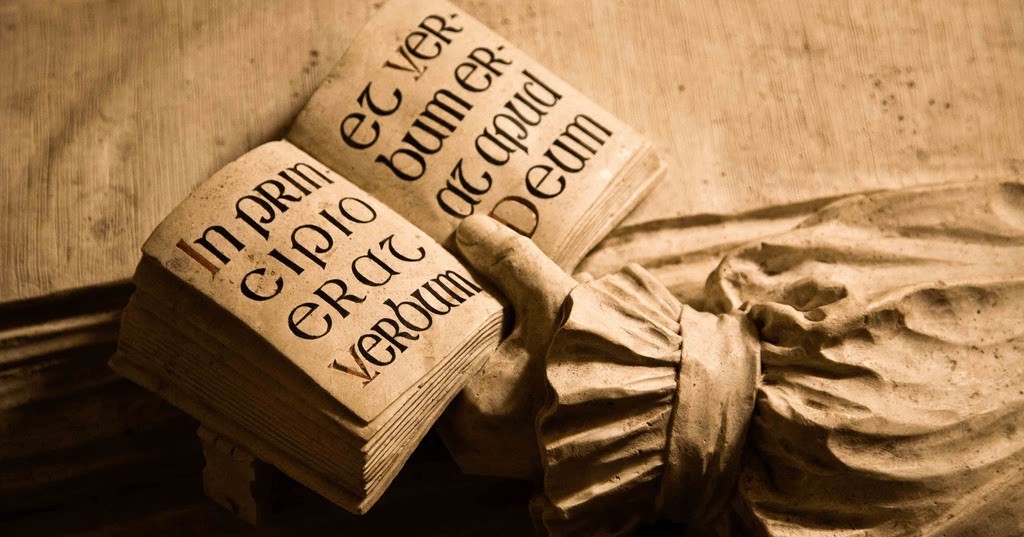 In prin-
cipio
erat
verbum
et ver-
bum er-
at apud
Deum